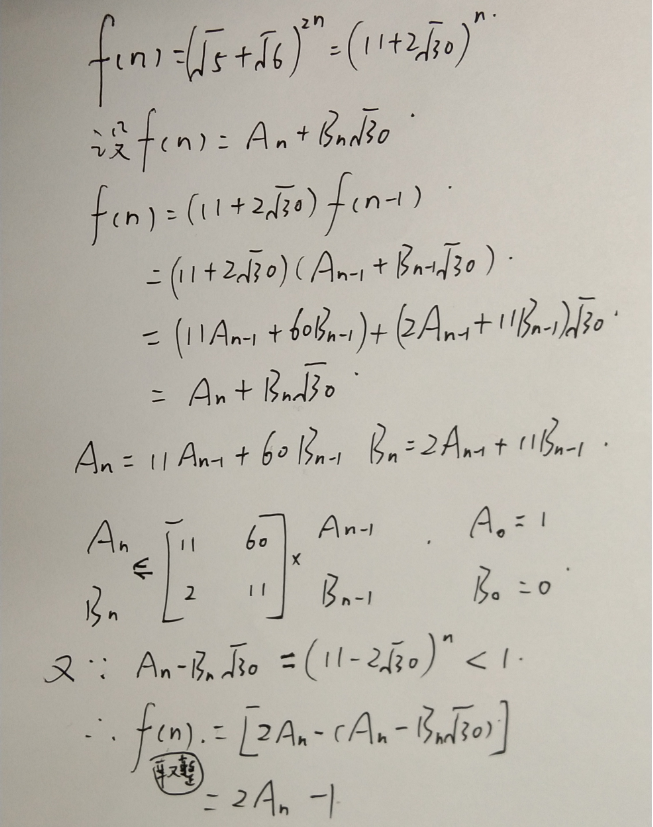 f(n)=(√5+√6)^2n=(11+2√30)^n.
设 f(n)= An+Bn√30.
f(n)=(11+2√30) f(n-1).
=(11+2√30)(An-1+Bn-1√30).
=(11An-1+60Bn-1)+(2An-1+11Bn-1)√30.
= An+Bn√30.
An=11An-1+60Bn-1 Bn=2An-1+11Bn-1.
An ⇐ [11 60] × An-1 . A0=1
Bn [2 11] Bn-1 B0=0.
又∵ An-Bn√30 =(11-2√30)^n<1.
∴ f(n).=[2An-(An-Bn√30)]
取整
=2An-1